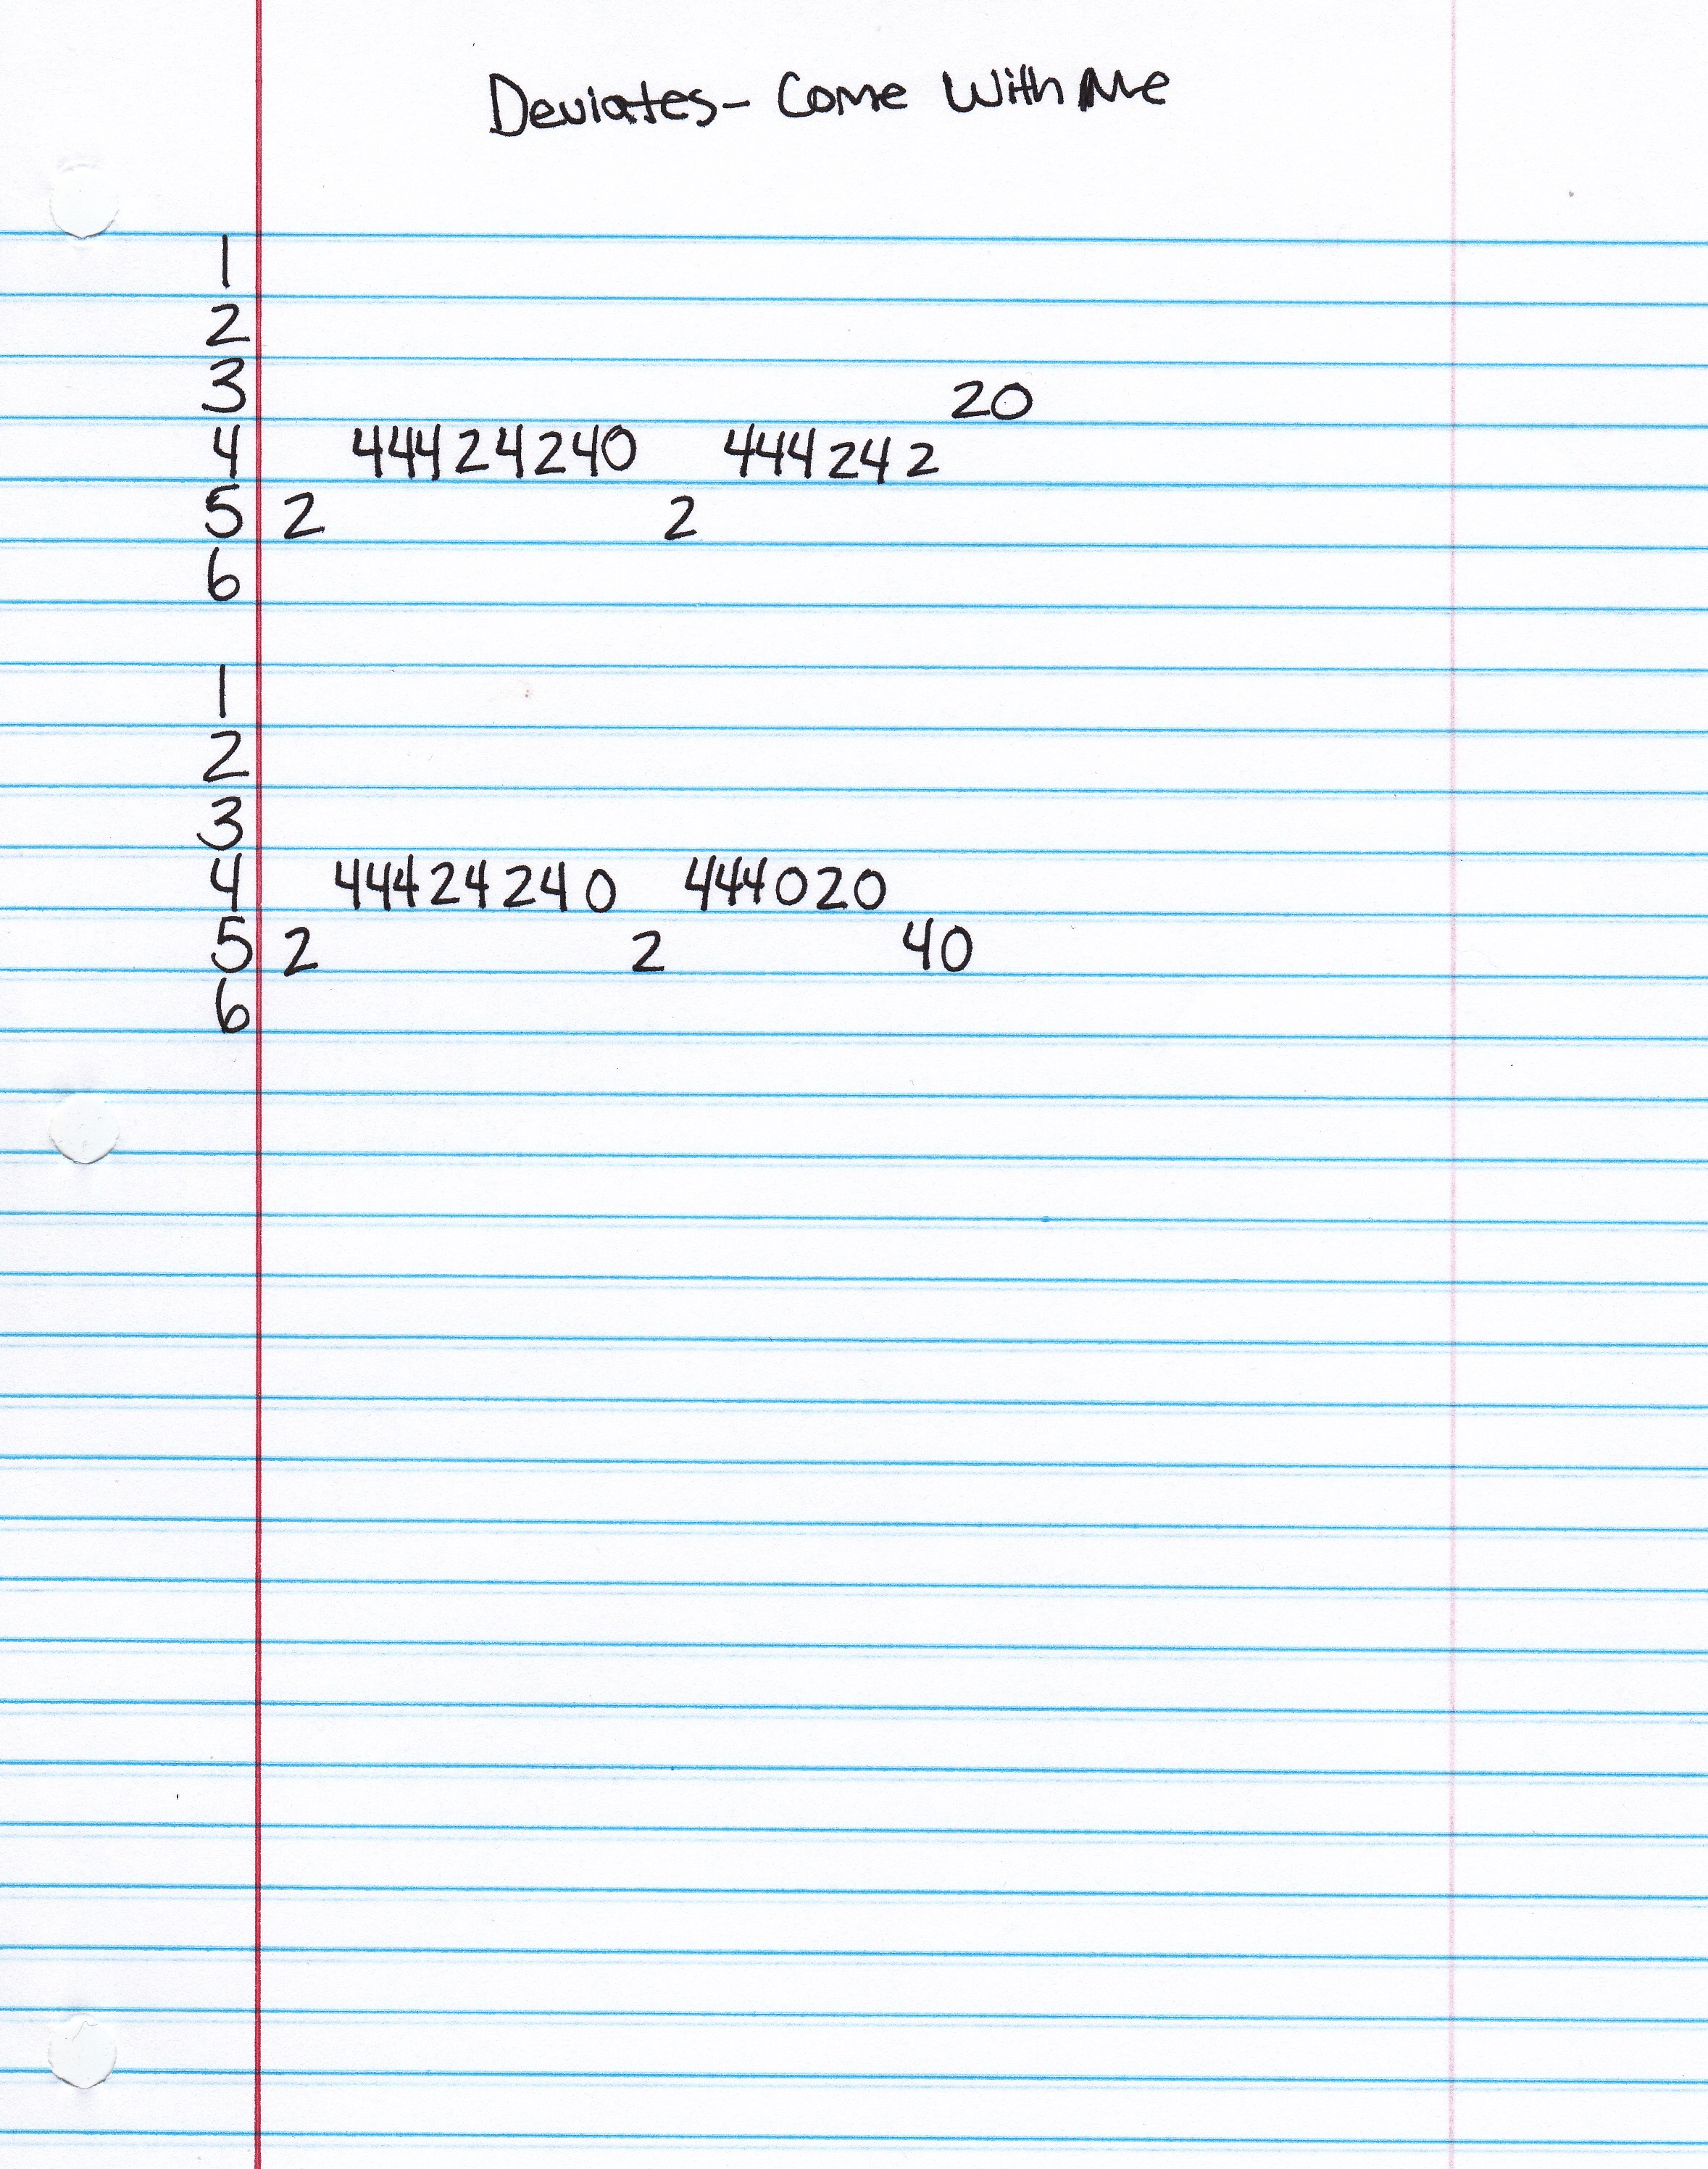 Deviates - Come With Me
1
2
3 20
4 44424240 444242
5 2 2
6
1
2
3
4 44424240 444020
5 2 2 40
6